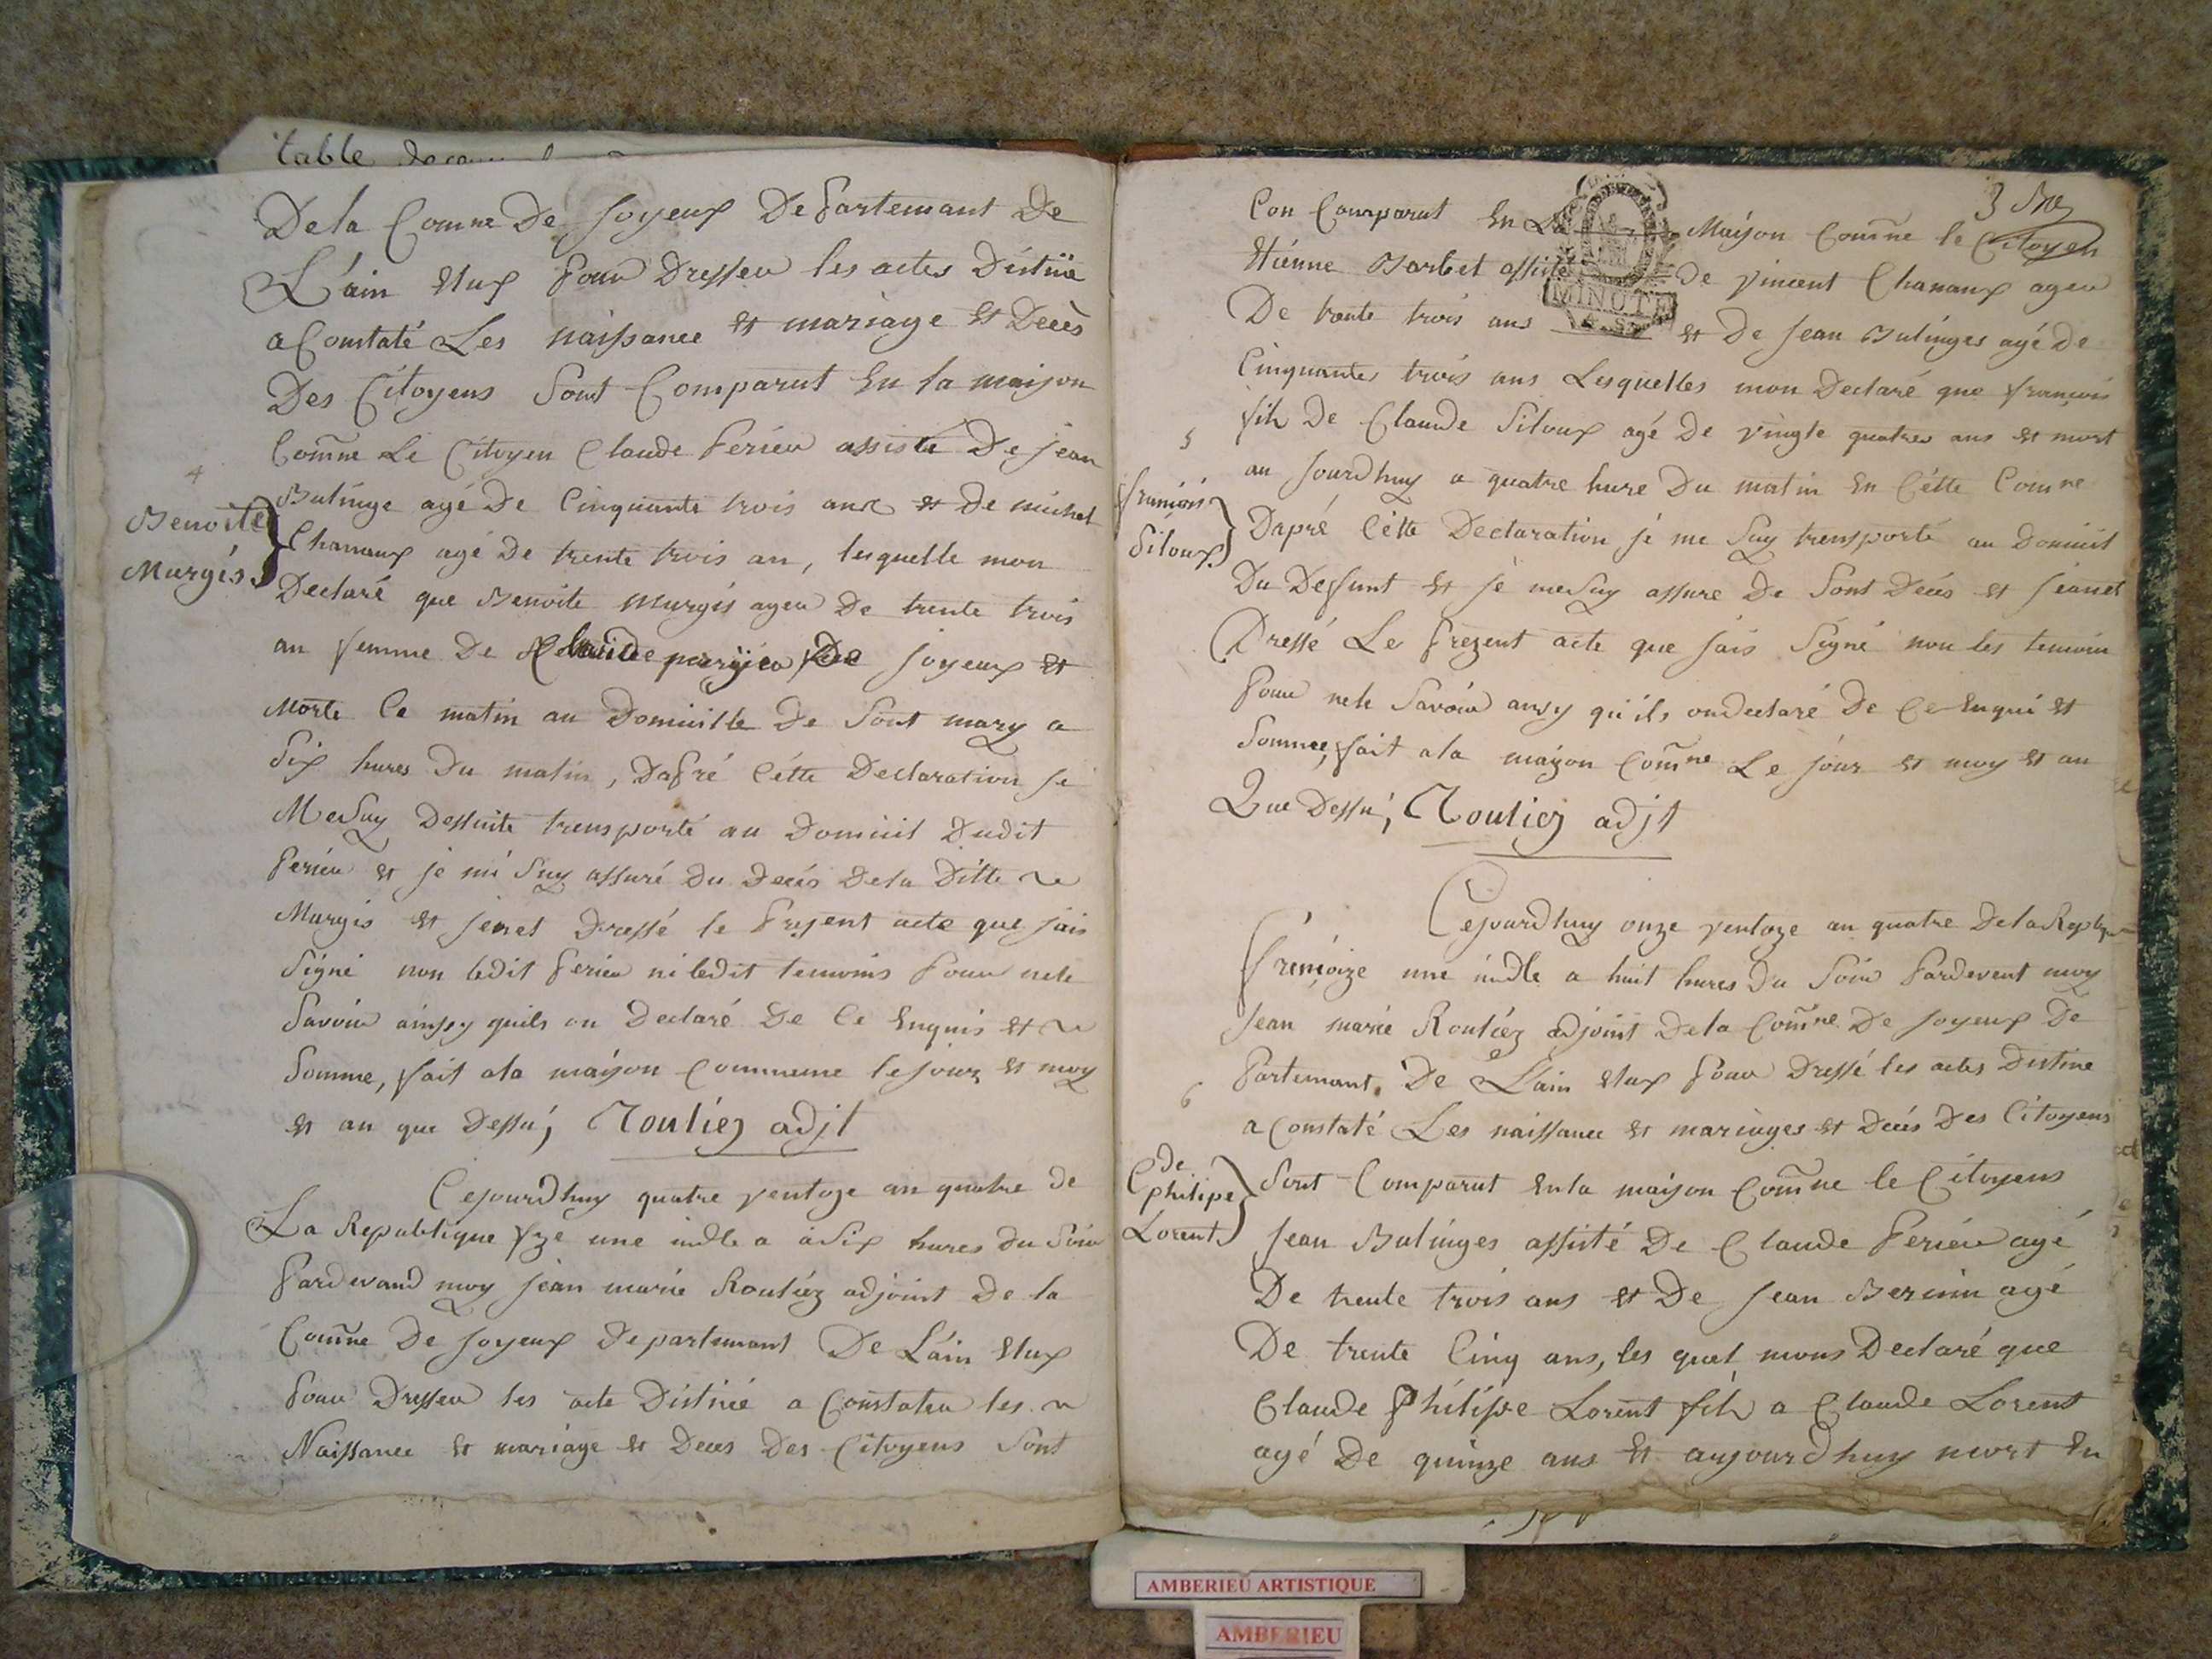 table
De la Comne De Joyeux Departemant De
L'ain Elux Pour Dresseu les actes Distiné
a Constaté Les naissance et mariage et Decès
Des Citoyens Sont Comparut En la maison
Comne Le Citoyen Claude Perieu assisté De jean
4
Bulinge agé De Cinquante trois ans et De michel
Benoite
Murgis
Chanaux agé De trente trois an, lesquelle mon
Declaré que Benoite Murgis ageu De trente trois
an femme De Claude perrieu De Joyeux et
Morte Ce matin au Domicille De Sont mary a
Six hures Du matin, Dapré Cétte Declaration je
Me Suy Dessuite trensporté au Domicil Dudit
Perieu et je mi Suy assuré Du Decés De la Ditte
Murgis et jenet Dressé le Present acte que jais
Signé non ledit Perieu ni ledit temoins Pour nele
Savoir ainsy quils on Declaré De Ce Enquis et
Somme, fait ala maison Commune le jour et moy
et an que Dessu, Rouliez adjt
Cejourdhuy quatre ventoze an quatre de
La Republique fze une indle a à Six hures du Soir
Pardevand moy jean marie Rouliez adjoint De la
Comne De Joyeux Departemant De L'ain Elux
Pour Dresseu les acte Distiné a Constateu les
Naissance et mariage et Deces Des Citoyens Sont
3
Con Comparut En La Maison Comne le Citoyen
MINUTE
Etiénne Barbet assisté De Vincent Chanaux ageu
De trante trois ans et De Jean Bulinges agé De
Cinquantes trois ans Lesquelles mon Declaré que françois
5
fils De Claude Siloux agé De Vingte quatres ans et mort
au Jourdhuy a quatre hure Du matin En Cétte Comne
françois
Siloux
Dapré Cétte Declaration je me Suy trensporté au Domicil
Du Deffunt et je me Suy assure De Sont Decés et jeanet
Dressé Le Prezent acte que jais Signé non les temoin
Pour nele Savoir ansy qu'ils on declaré De Ce Enqui et
Sommee, fait a la maizon Comne Le jour et moy et an
Que Dessu, Rouliez adjt
Cejourdhuy onze ventoze an quatre De la
frençoize une indle a huit hures Du Soir Pardevent moy
Jean marie Rouliéz adjoint De la Comne De Joyeux De
Partemant De L'ain Elux Pour Dressé les actes Distine
6
a Constaté Les naissance et mariages et Decés Des Citoyens
Cde
philipe
Lorent
Sont Comparut En la maison Comne le Citoyens
Jean Bulinges assisté De Claude Periéu agé
De trente trois ans et De Jean agé
De trente Cinq ans, les quel mons Declaré que
Claude Philippe Lorent fils a Claude Lorent
agé De quinze ans et aujourdhuy mort En
AMBERIEU ARTISTIQUE
AMBERIEU